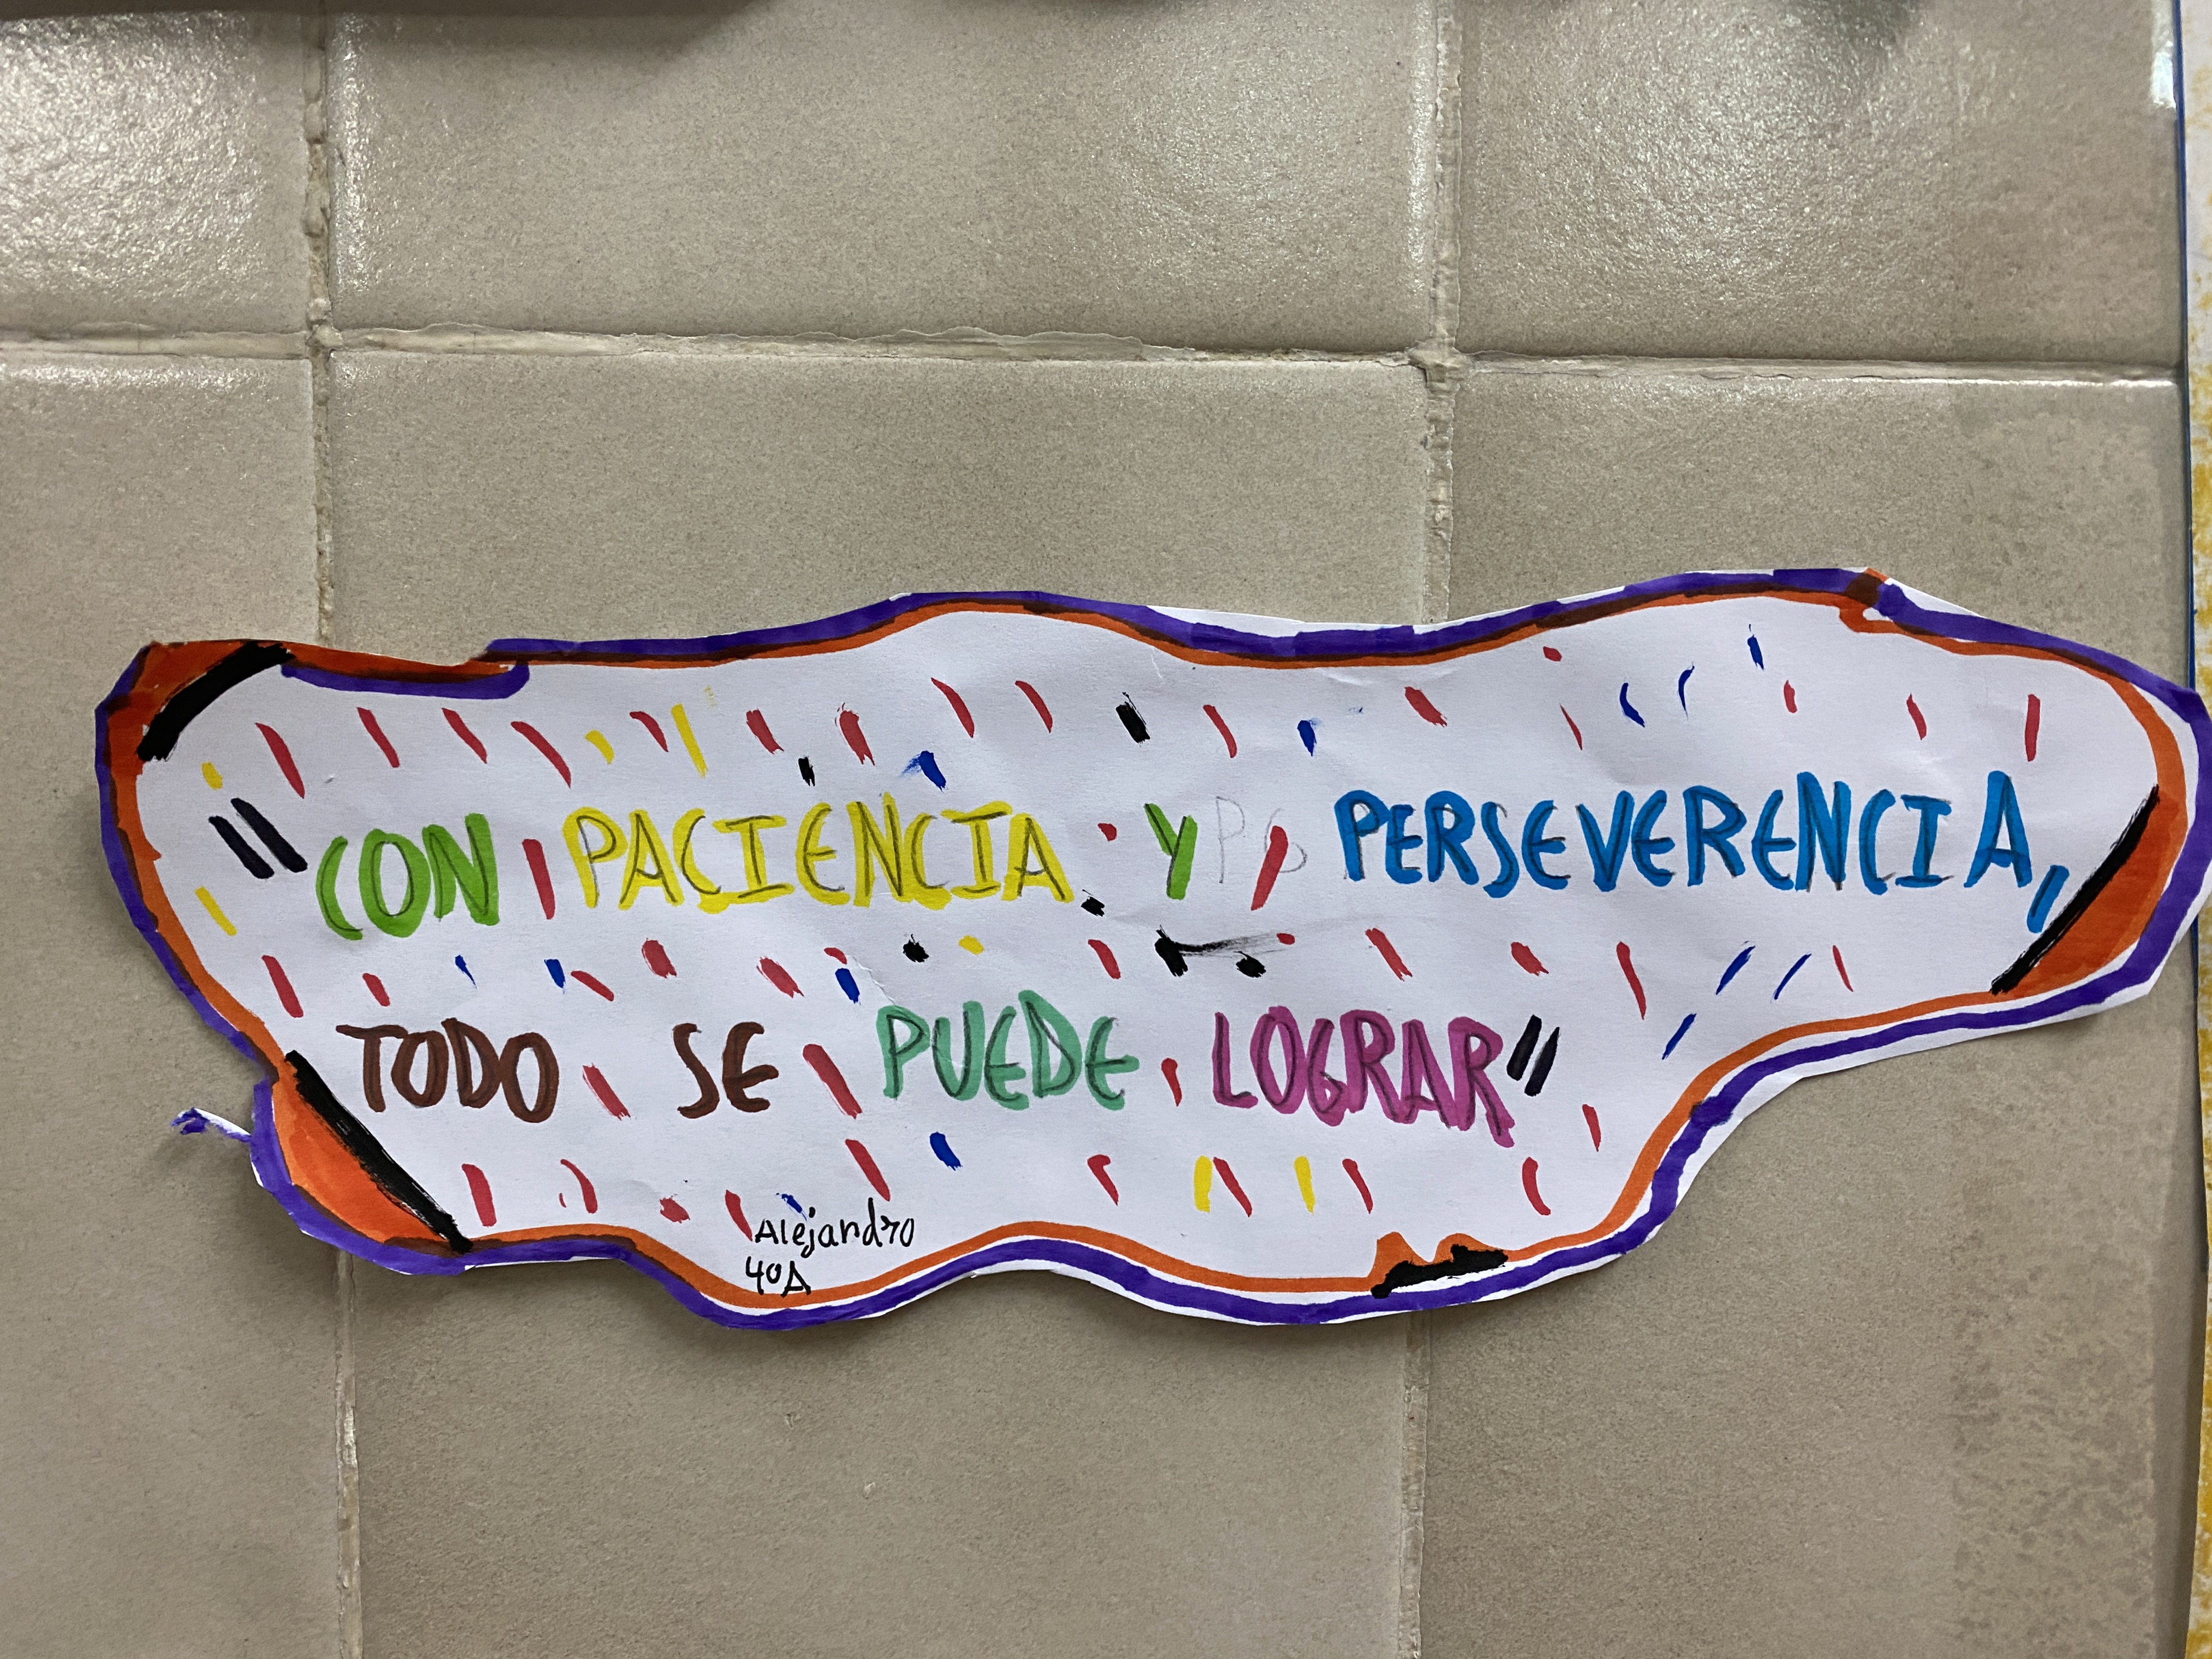 "CON PACIENCIA Y PERSEVERENCIA,
TODO SE PUEDE LOGRAR"
Alejandro
4ºA